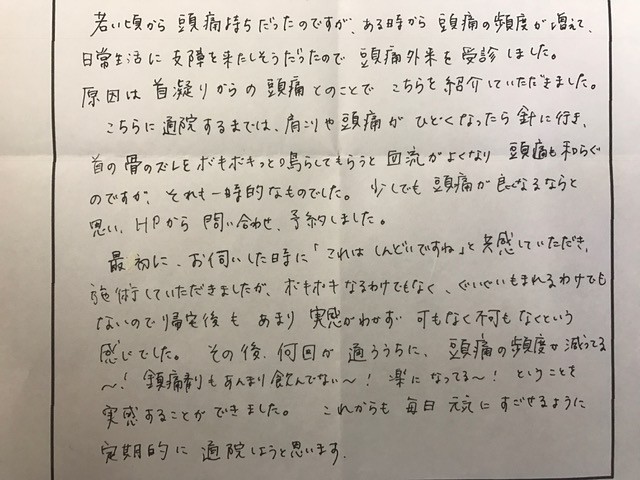 若い頃から頭痛持ちだったのですが、ある時から頭痛の頻度が増えて、
日常生活に支障を来たしそうだったので頭痛外来を受診しました。
原因は首凝りからの頭痛とのことでこちらを紹介していただきました。
こちらに通院するまでは、肩こりや頭痛がひどくなったら針に行き、
首の骨のズレをボキボキっと鳴らしてもらうと血流がよくなり頭痛も和らぐ
のですが、それも一時的なものでした。少しでも頭痛が良くなるならと
思い、HPから問い合わせ、予約しました。
最初に、お伺いした時に「これはしんどいですね」と共感していただき、
施術していただきましたが、ボキボキなるわけでもなく、ぐいぐいもまれるわけでも
ないので帰宅後もあまり実感がわかず可もなく不可もなくという
感じでした。その後、何回か通ううちに、頭痛の頻度が減ってる
～!鎮痛剤もあんまり飲んでない～!楽になってる～!ということを
実感することができました。これからも毎日元気にすごせるように
定期的に通院しようと思います.